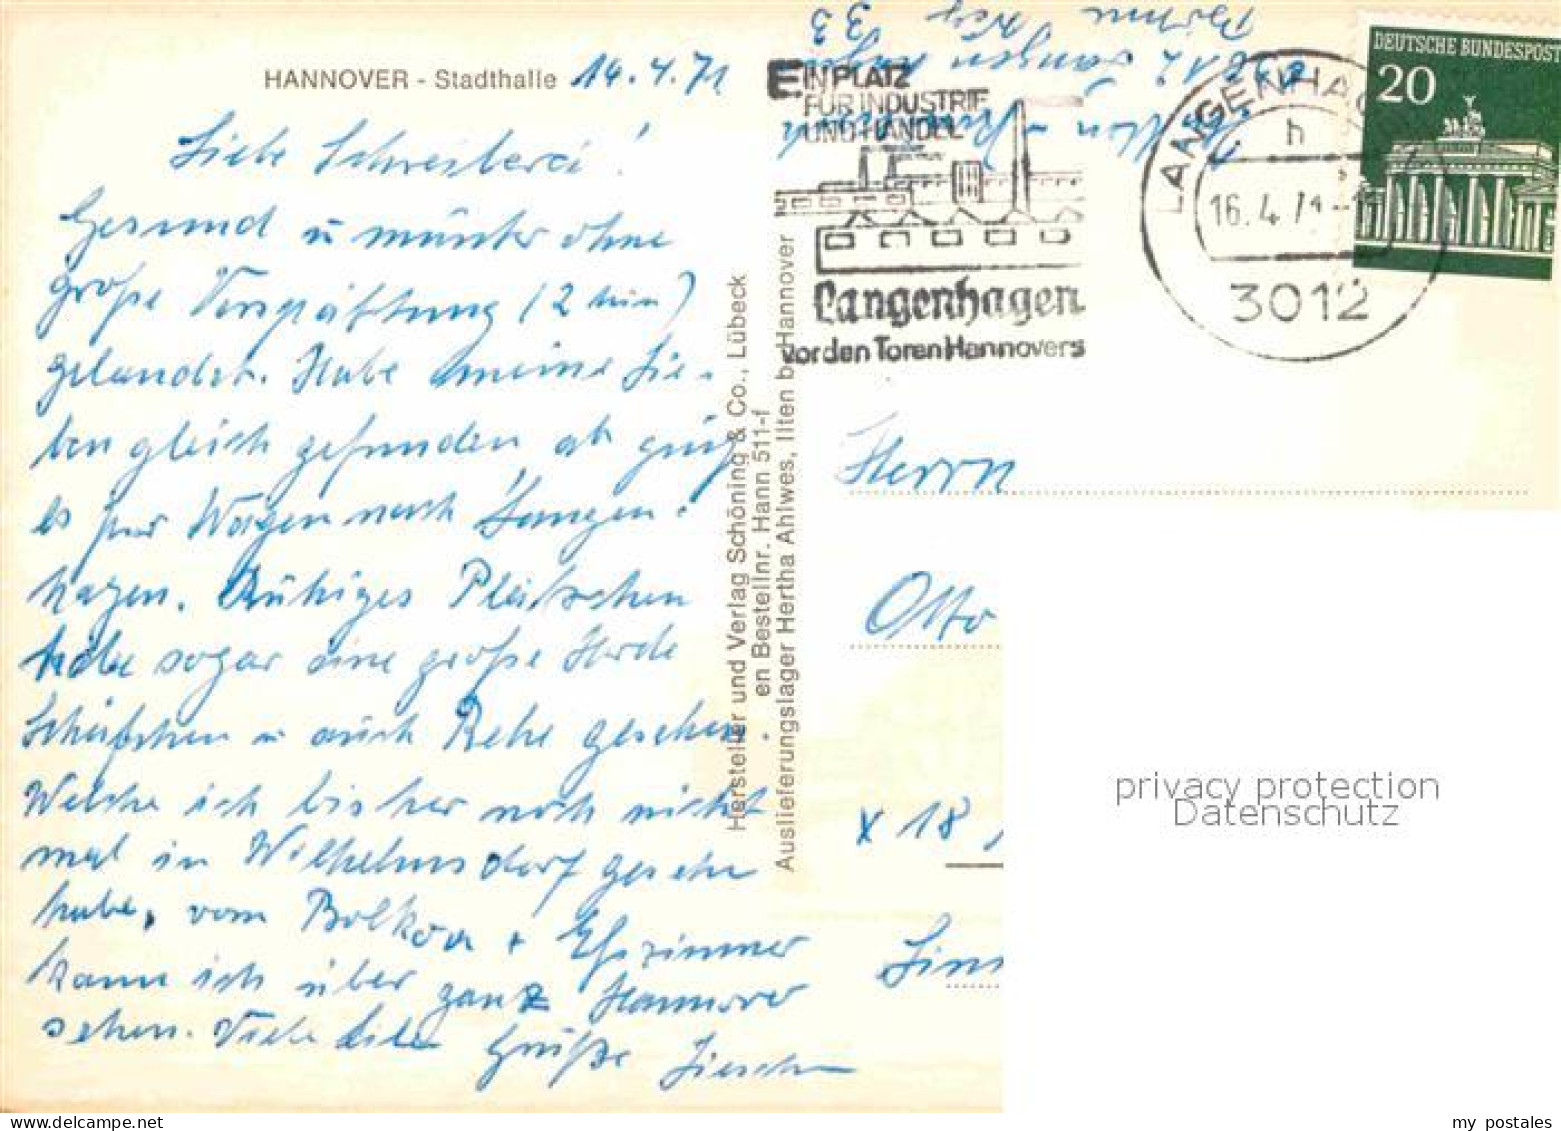 HANNOVER - Stadthalle 14.4.71
Liebe Schreiberei!
Gesund u munter ohne
große Verspätung (2 min)
gelandet. Habe meine Lie-
ben gleich gefunden ab ging
es per Wagen nach Langen-
hagen. Ruhiges
habe sogar eine große Herde
Schäfchen u auch Rehe gesehen.
Welche ich bisher noch nicht
mal in Wilhelmsdorf gesehn
habe, vom Balkon + Eßzimmer
kann ich über ganz Hannover
sehen. Viele liebe Grüße
Hersteller und Verlag Schöning & Co., Lübeck
en Bestellnr. Hann 511-f
Auslieferungslager Hertha Ahlwes, Ilten b. Hannover
3012 Langenhagen
33
EIN PLATZ
FÜR INDUSTRIE
UND HANDEL
Langenhagen
vor den Toren Hannovers
LANGENHAGEN
h
16.4.71-1
3012
DEUTSCHE BUNDESPOST
20
Herrn
Otto
x 18
privacy protection
Datenschutz
my postales